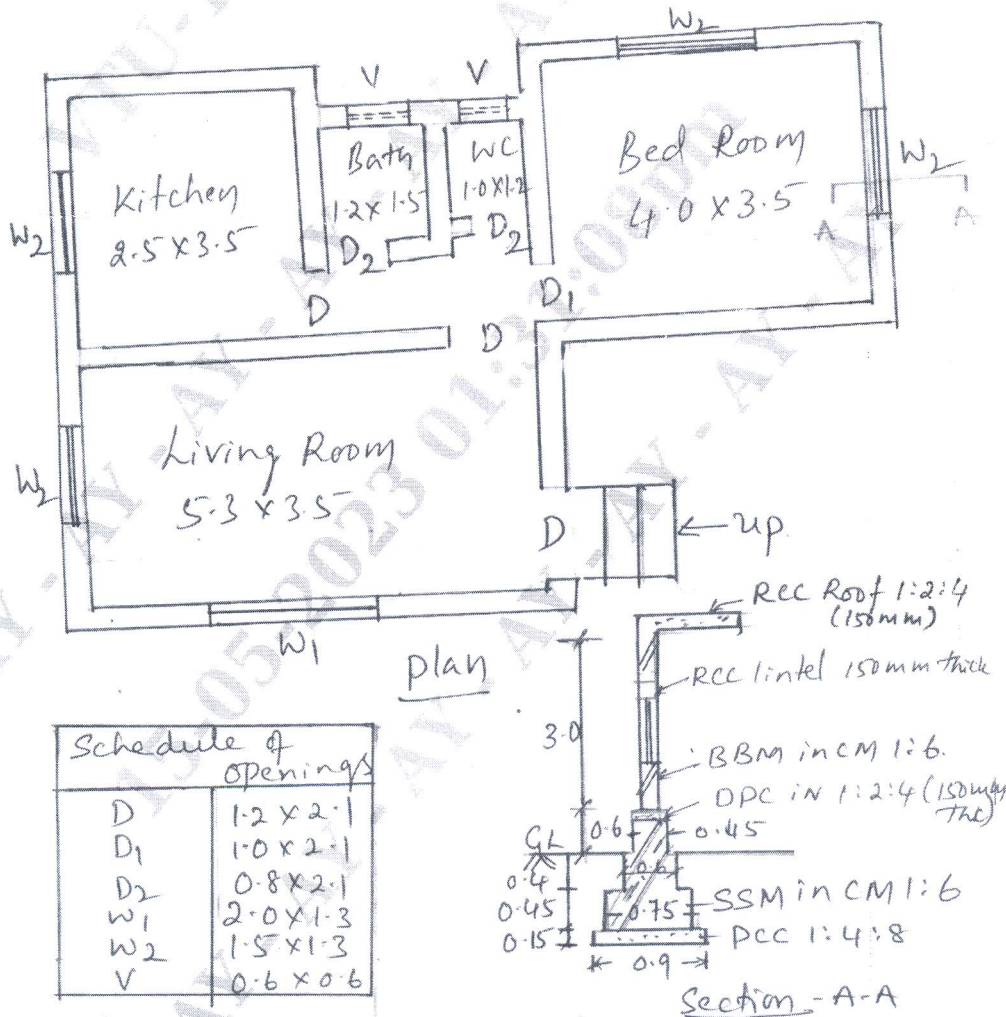 W2
V V
Kitchen
2.5 X 3.5
Bath
1.2 X 1.5
WC
1.0 X 1.2
Bed Room
4.0 X 3.5
W2
A A
W2
D2
D2
D
D1
D
Living Room
5.3 X 3.5
W2
D
up
W1
plan
Schedule of
openings
D 1.2 X 2.1
D1 1.0 X 2.1
D2 0.8 X 2.1
W1 2.0 X 1.3
W2 1.5 X 1.3
V 0.6 X 0.6
RCC Roof 1:2:4
(150mm)
RCC lintel 150mm thick
3.0
BBM in CM 1:6.
DPC in 1:2:4 (150mm
GL
0.6
0.45
0.6
0.4
0.45
0.75
SSM in CM 1:6
0.15
PCC 1:4:8
0.9
Section - A-A